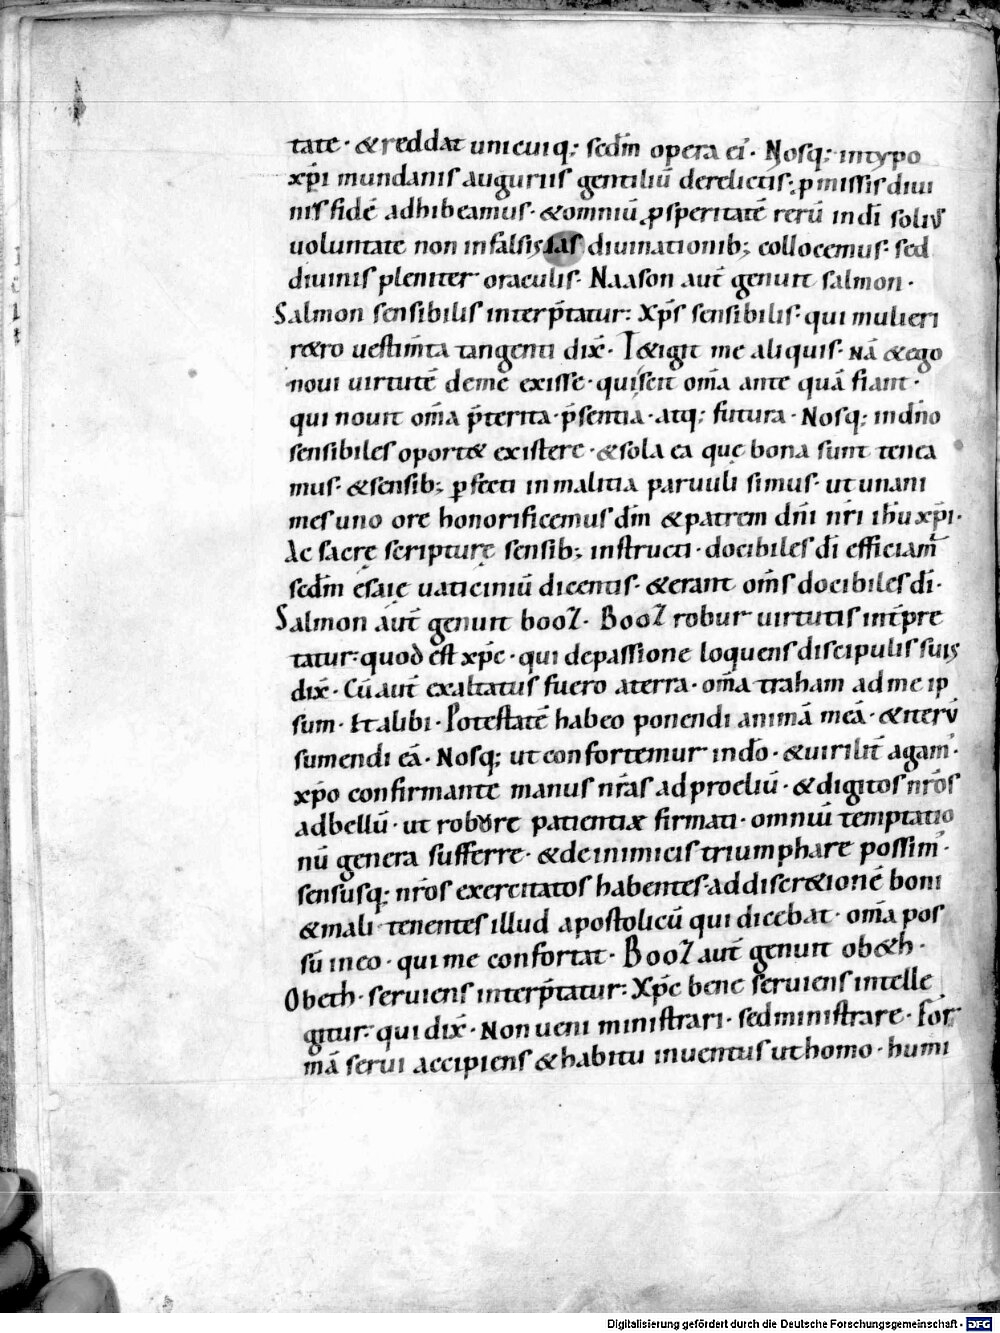 tate · &reddat unicuiq; scdm̄ opera ei᷒ · Nosq; intypo
xp̄i mundanis auguriis gentiliū derelictis · ꝓmissis diui
nis fidē adhibeamus · &omniū ꝓsperitatē rerū indī soliꝰ
uoluntate non infalsis ſas diuinationib; collocemus · sed
diuinis pleniter oraculis · Naason aut̄ genuit salmon ·
Salmon sensibilis interp̄tatur : Xp̄s sensibilis · qui mulieri
retro uestim̄ta tangenti dix̄ · Tetigit me aliquis · nā &ego
noui uirtutē deme exisse · quiscit om̄a ante quā fiant ·
qui nouit om̄a p̄terita · p̄sentia · atq; futura · Nosq; indn̄o
sensibiles oport& existere · &sola ea quę bona sunt tenea
mus · &sensib; ꝑfecti inmalitia paruuli simus · ut unani
mes uno ore honorificemus dm̄ &patrem dn̄i nr̄i ihu xp̄i ·
Ac sacrę scripturę sensib; instructi · docibiles dī efficiam᷒
scdm̄ esaię uaticiniū dicentis · &erant om̄s docibiles dī ·
Salmon aut̄ genuit booz · Booz robur uirtutis int̄pre
tatur : quod est xp̄c · qui depassione loquens discipulis suis
dix̄ · Cū aut̄ exaltatus fuero aterra · om̄a traham ad me ip
sum · Et alibi · Potestatē habeo ponendi animā meā · &iterū
sumendi eā · Nosq; ut confortemur indn̄o · &uirilit̄ agam᷒ ·
xp̄o confirmante manus nr̄as ad proeliū · &digitos nr̄os
adbellū · ut robore patientiæ firmati · omniū temptatio
nū genera sufferre · &deinimicis triumphare possim᷒ ·
sensusq; nr̄os exercitatos habentes · addiscr&ionē boni
&mali · tenentes illud apostolicū qui dicebat · om̄a pos
sū ineo · qui me confortat · Booz aut̄ genuit ob&h ·
Obeth · seruiens interp̄tatur : Xp̄c bene seruiens intelle
gitur · qui dix̄ · Non ueni ministrari · sed ministrare · For
mā serui accipiens &habitu inuentus ut homo · humi
Digitalisierung gefördert durch die Deutsche Forschungsgemeinschaft - DFG